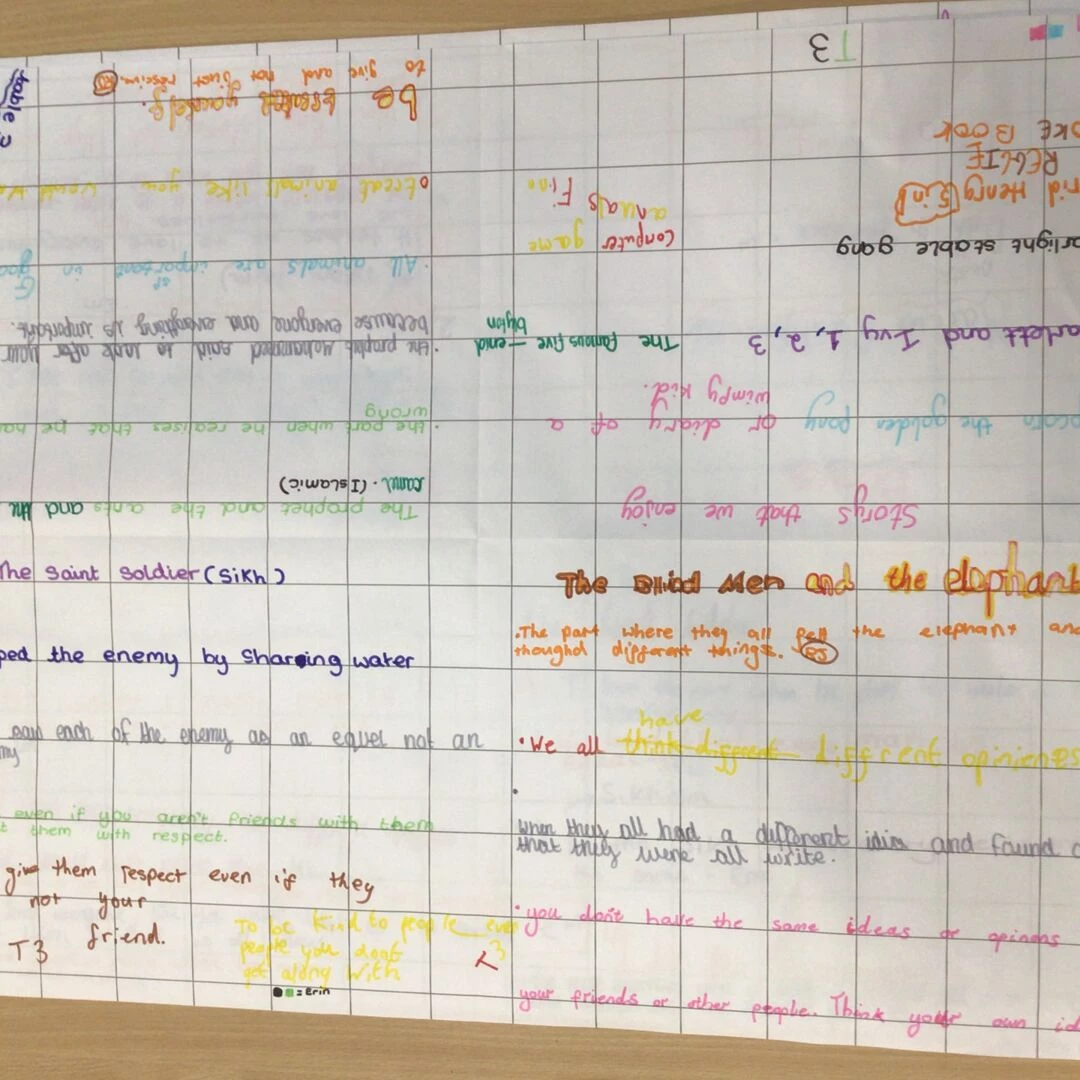 The Saint Soldier (Sikh)
ped the enemy by sharing water
saw each of the enemy as an equel not an
my
even if you aren't friends with them
t them with respect.
give them respect even if they
not your
friend.
T3
To be kind to people even
people you dont
get along with
T3
= Erin
The Blind Men and the elephant
.The part where they all felt the elephant and
thoughd different things.
have
• We all think different different opinienes
•
when they all had a different idia and found o
that they were all write.
• you don't have the same ideas or opinons
your friends or other people. Think your own id
Storys that we enjoy
pcorn the golden pony or diary of a
wimpy kid.
arlett and Ivy 1, 2, 3
The famous five – enid
blyton
arlight stable gang
Computer game
anuals Fine
rid Henry
Erin
RELIE
OKE BOOK
T3
The prophet and the ants and the
camel. (Islamic)
• the part when he realises that he ha
wrong
• the prophet Mohammed said to look after your
because everyone and everything is important.
• All animals are important in
of
G
treat animals like you would
be
to give and not just receive.
table